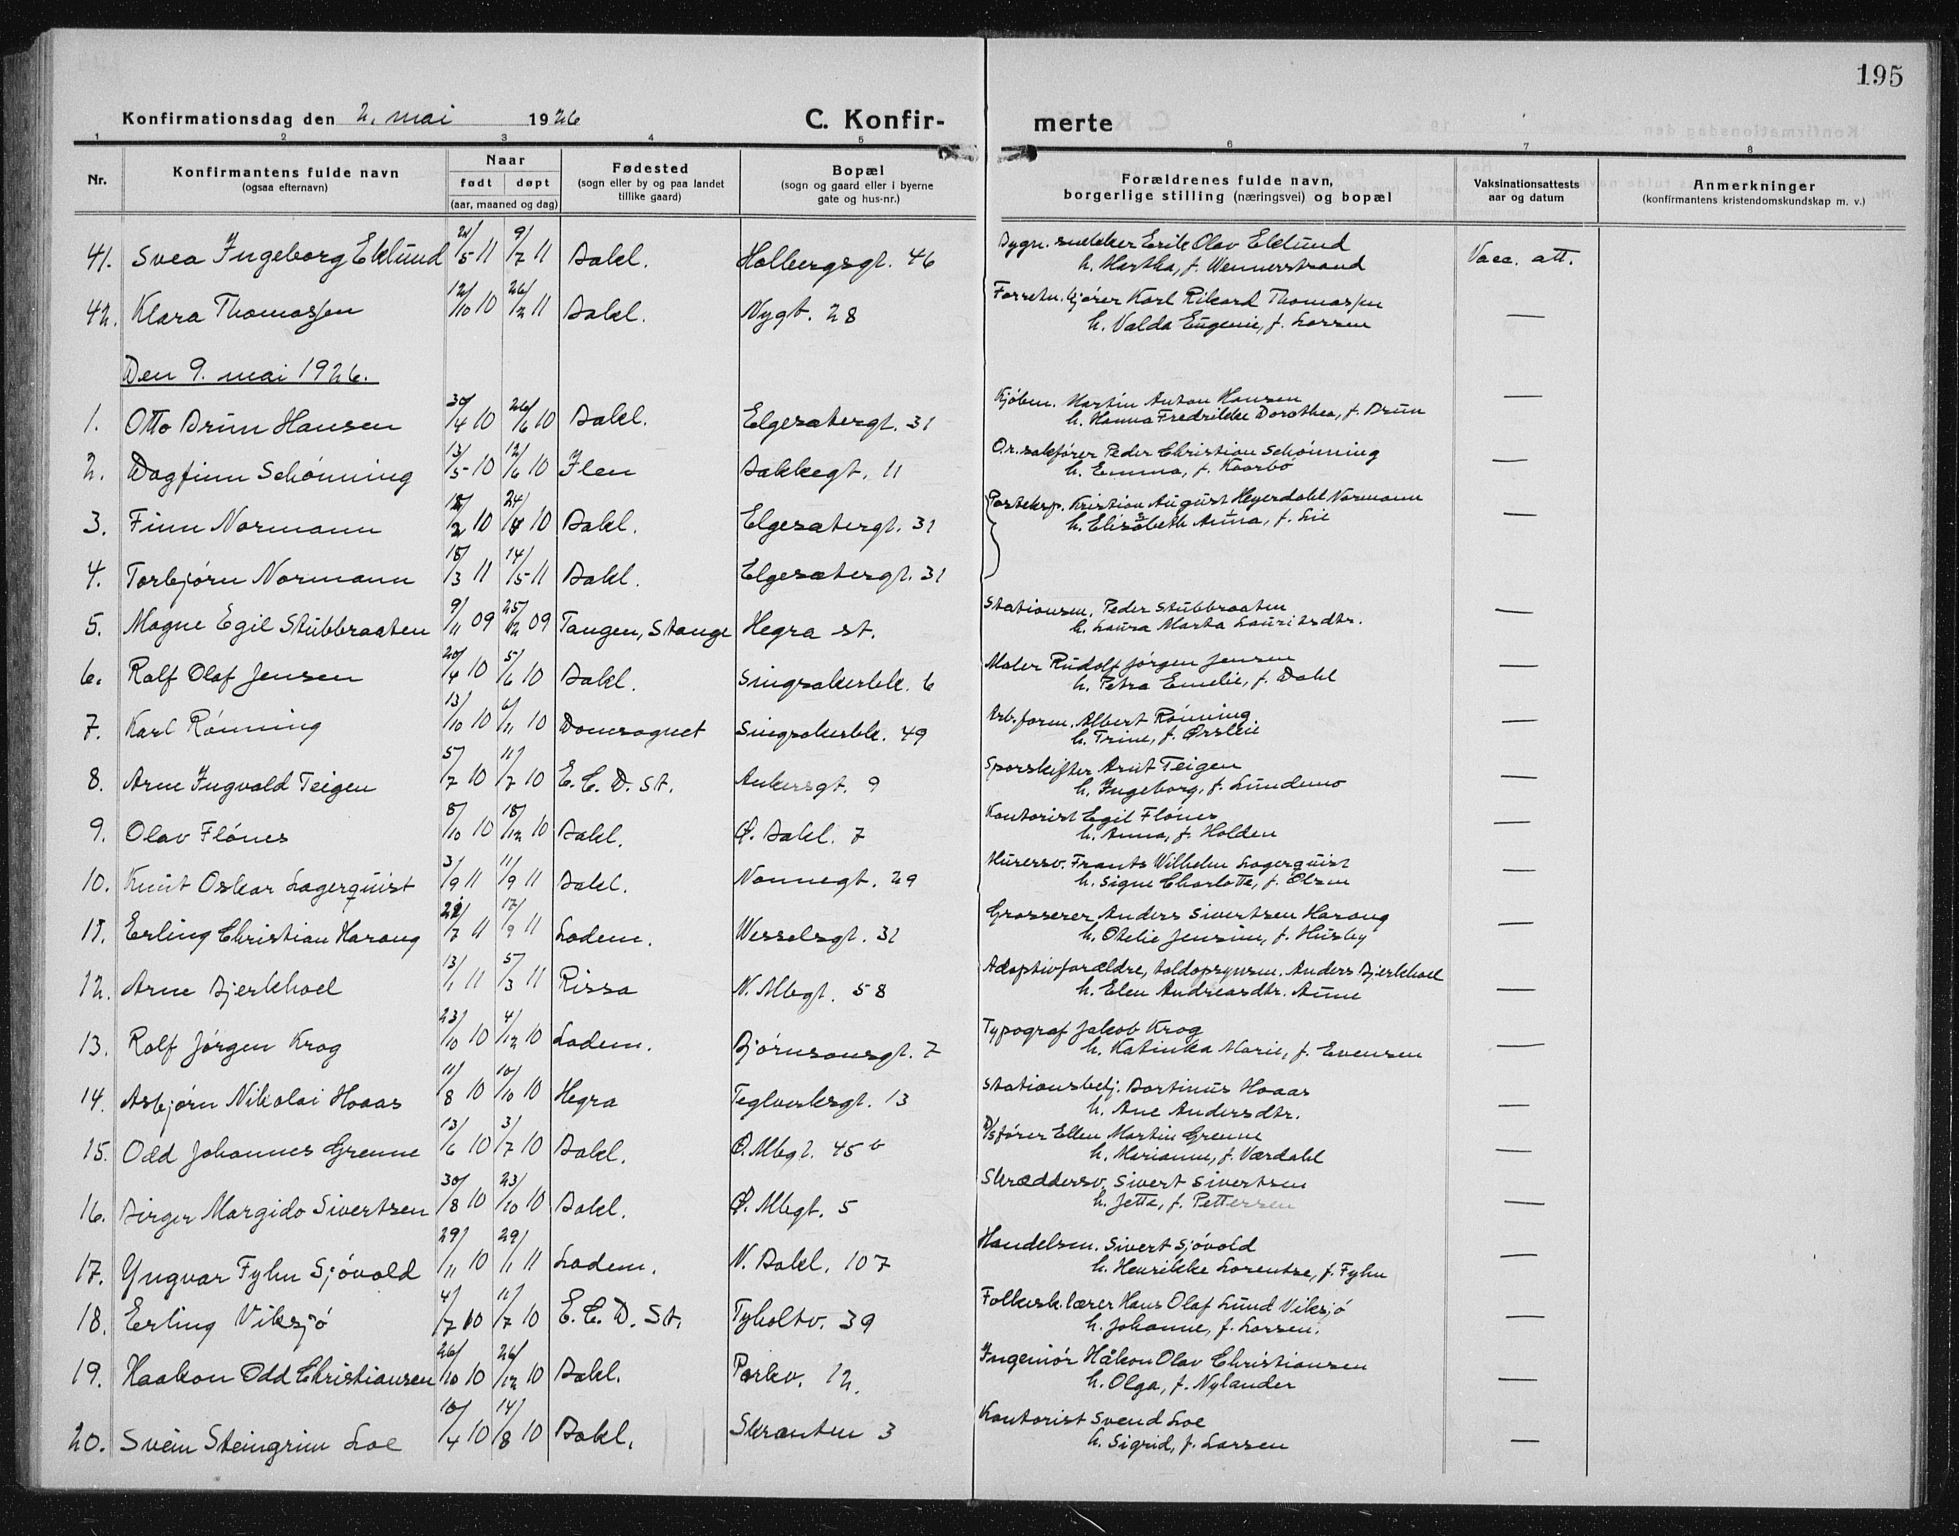 195
Konfirmationsdag den 2. mai 1926 C. Konfir- merte
1 2 3 4 5 6 7 8
Nr. Konfirmantens fulde navn (ogsaa efternavn) Naar født døpt (aar, maaned og dag) Fødested (sogn eller by og paa landet tillike gaard) Bopæl (sogn og gaard eller i byerne gate og hus-nr.) Forældrenes fulde navn, borgerlige stilling (næringsvei) og bopæl Vaksinationsattests aar og datum Anmerkninger (konfirmantens kristendomskundskap m. v.)
41. Svea Ingeborg Eklund 21/5 11 9/7 11 Bakl. Holbergsgt. 46 Bygn. snekker Erik Olav Eklund Vacc. att.
h. Martha, f. Wennerstrand
42. Klara Thomassen 12/10 10 26/2 11 Bakl. Nygt. 28 Forretn. kjører Karl Rikard Thomassen —
h. Valda Eugenie, f. Larsen
Den 9. mai 1926.
1. Otto Brun Hansen 30/4 10 26/6 10 Bakl. Elgesætergt. 31 Kjøbm. Martin Anton Hansen —
h. Hanna Fredrikke Dorothea, f. Brun
2. Dagfinn Schønning 13/5 10 12/6 10 Ilen Bakkegt. 11 O.r.sakfører Peder Christian Schønning —
h. Emma, f. Kaarbø
3. Finn Normann 18/2 10 24/4 10 Bakl. Elgesætergt. 31 Posteksp. Kristian August Heyerdahl Normann —
h. Elisabeth Anna, f. Lie
4. Torbjørn Normann 18/3 11 14/5 11 Bakl. Elgesætergt. 31
5. Magne Egil Stubbraaten 9/11 09 25/12 09 Tangen, Stange Hegra st. Stationsm. Peder Stubbraaten —
h. Laura Marta Lauritsdtr.
6. Rolf Olaf Jensen 20/4 10 5/6 10 Bakl. Singsakerbk. 6 Maler Rudolf Jørgen Jensen —
h. Petra Emelie, f. Dahl
7. Karl Rønning 13/10 10 6/11 10 Domsognet Singsakerbk. 49 Arb.form. Albert Rønning —
h. Trine, f. Ørsleie
8. Arne Ingvald Teigen 5/7 10 11/7 10 E. C. D. St. Ankersgt. 9 Sporskifter Arnt Teigen —
h. Ingeborg, f. Lundemo
9. Olav Flønes 8/10 10 18/12 10 Bakl. Ø. Bakl. 7 Kontorist Egil Flønes —
h. Anna, f. Holden
10. Knut Oskar Lagerquist 3/9 11 11/9 11 Bakl. Nonnegt. 29 Murersv. Frants Wilhelm Lagerquist —
h. Signe Charlotte, f. Olsen
11. Erling Christian Harang 22/7 11 17/9 11 Ladem. Wesselsgt. 31 Grosserer Anders Sivertsen Harang —
h. Otelie Jensine, f. Husby
12. Arne Bjerkhoel 13/1 11 5/3 11 Rissa N. Mbgt. 58 Adoptivforældre, toldopsynsm. Anders Bjerkhoel —
h. Elen Andreasdtr. Aune
13. Rolf Jørgen Krog 23/10 10 4/12 10 Ladem. Bjørnsonsgt. 7 Typograf Jakob Krog —
h. Katinka Marie, f. Evensen
14. Asbjørn Nikolai Hoaas 11/8 10 10/10 10 Hegra Teglverksgt. 13 Stationsbetj. Bortinus Hoaas —
h. Ane Andersdtr.
15. Odd Johannes Grenne 13/6 10 3/7 10 Bakl. Ø. Mbgt. 45 b D/Sfører Ellen Martin Grenne —
h. Marianne, f. Værdahl
16. Birger Margido Sivertsen 30/8 10 23/10 10 Bakl. Ø. Mbgt. 5 Skræddersv. Sivert Sivertsen —
h. Jette, f. Pettersen
17. Yngvar Fyhn Sjøvold 29/11 10 29/1 11 Ladem. N. Bakl. 107 Handelsm. Sivert Sjøvold —
h. Henrikke Lorentze, f. Fyhn
18. Erling Viksjø 4/7 10 11/7 10 E. C. D. St. Tyholtv. 39 Folkesk.lærer Hans Olaf Lund Viksjø —
h. Johanne, f. Larsen.
19. Haakon Odd Christiansen 26/10 10 26/12 10 Bakl. Parkv. 12. Ingeniør Håkon Olav Christiansen —
h. Olga, f. Nylander
20. Svein Steingrim Loe 10/4 10 14/8 10 Bakl. Skranten 3 Kontorist Svend Loe —
h. Sigrid, f. Larsen